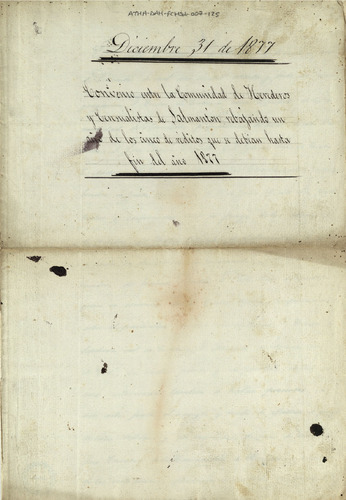 ATHA-DAH-FCHSL-007-125
Diciembre 31 de 1877
Convenio entre la Comunidad de Herederos
y Censualistas de Salmantón rebajando un
de los cinco de réditos que se debian hasta
fin del año 1877